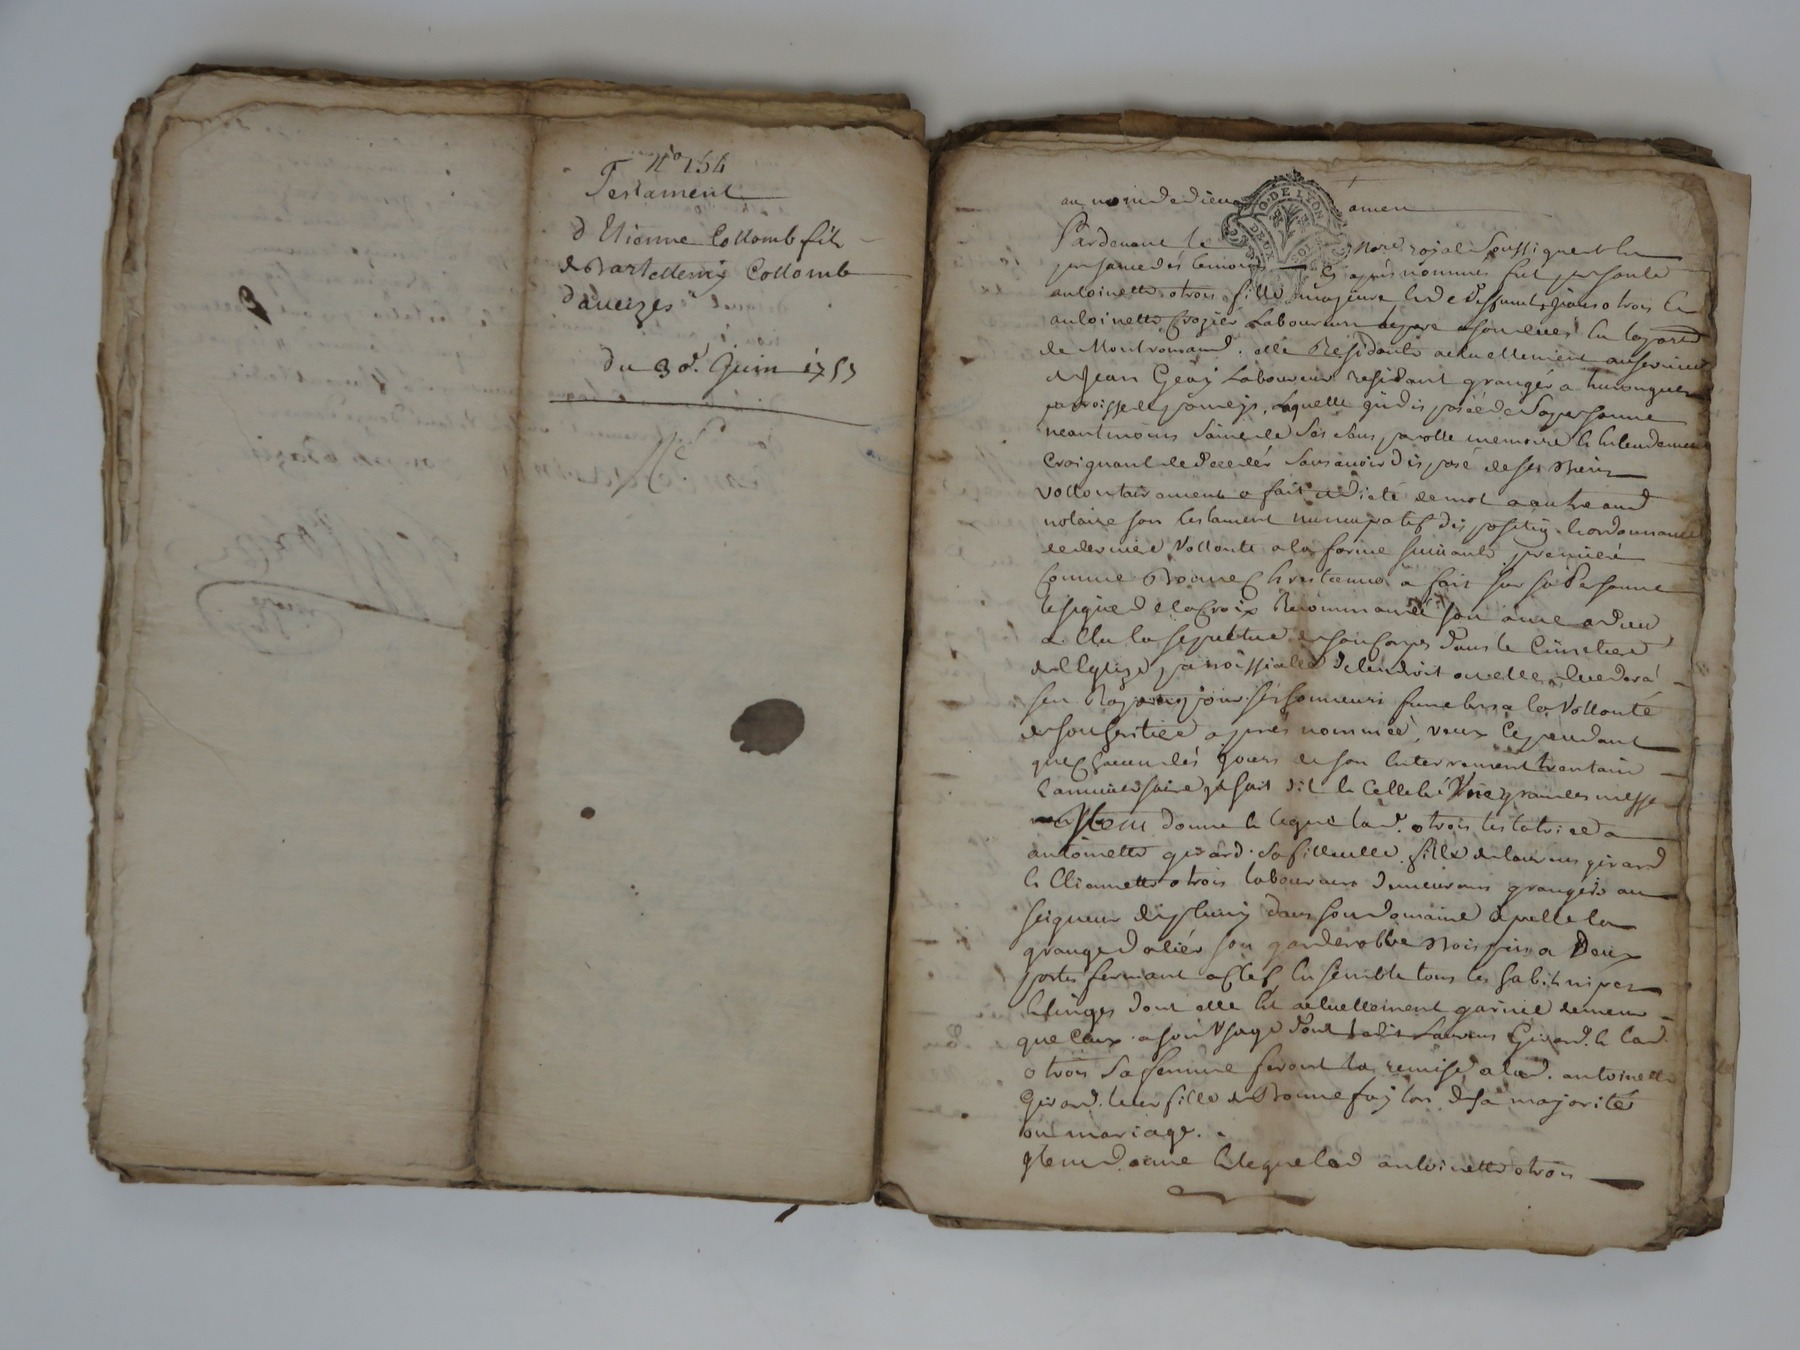 N° 154
Testament
d'Etienne Collomb fils
de Barthellemy Collomb
d'aveizes
du 30e. Juin 1757
au nom de dieu amen
GN. DE LYON
Pardevant le Notre royal soussigné et en
presance des temoins cy apres nommes fut presante
antoinette otrois fille majeure de deffunts Jean otrois et
antoinette Crozier Laboureurs
de Montromand. elle Residante actuellement au service
de Jean Geay Laboureur residant granger a
parroisse de pomeys, Laquelle indisposée de sa personne
neantmoins saine de ses sens, parolle memoire et entendement
Craignant de deceder sans avoir disposé de ses Biens
vollontairement a fait et dicté de mot a autre aud
notaire son testament nuncupatif disposition et ordonnance
de derniere vollonté a la forme suivante, premiere
comme Bonne Chrestienne a fait sur sa Personne
le signe de la Croix Recommandé son ame a dieu
a Elu la sepulture de son Corps dans le Cimetiere
de l'Eglize parroissialle de l'endroit ou elle decedera
ses honneurs funebres a la Vollonté
de son heritier apres nommée, veux Cependant
que Chacun des jours de son Enterrement trentain
et anniversaire il soit dit et Cellebré Une grande messe
Item donne et legue lad. otrois testatrice a
antoinette girard sa filleulle, fille de laurens girard
et Etiennette otrois laboureurs demeurans grangers au
seigneur de pluvy dans son domaine apellé la
grange dalier son garderobbe Bois pin a Deux
portes fermant a Clef Ensemble tous les habits nipes
et linges dont elle est actuellement garnie de meme
que Ceux a son Usage dont ledit Laurens Girard et lad.
otrois sa femme feront la remise a lad. antoinette
Girard leur fille de Bonne foy lors de sa majorité
ou mariage.
Item donne et legue lad antoinette otrois